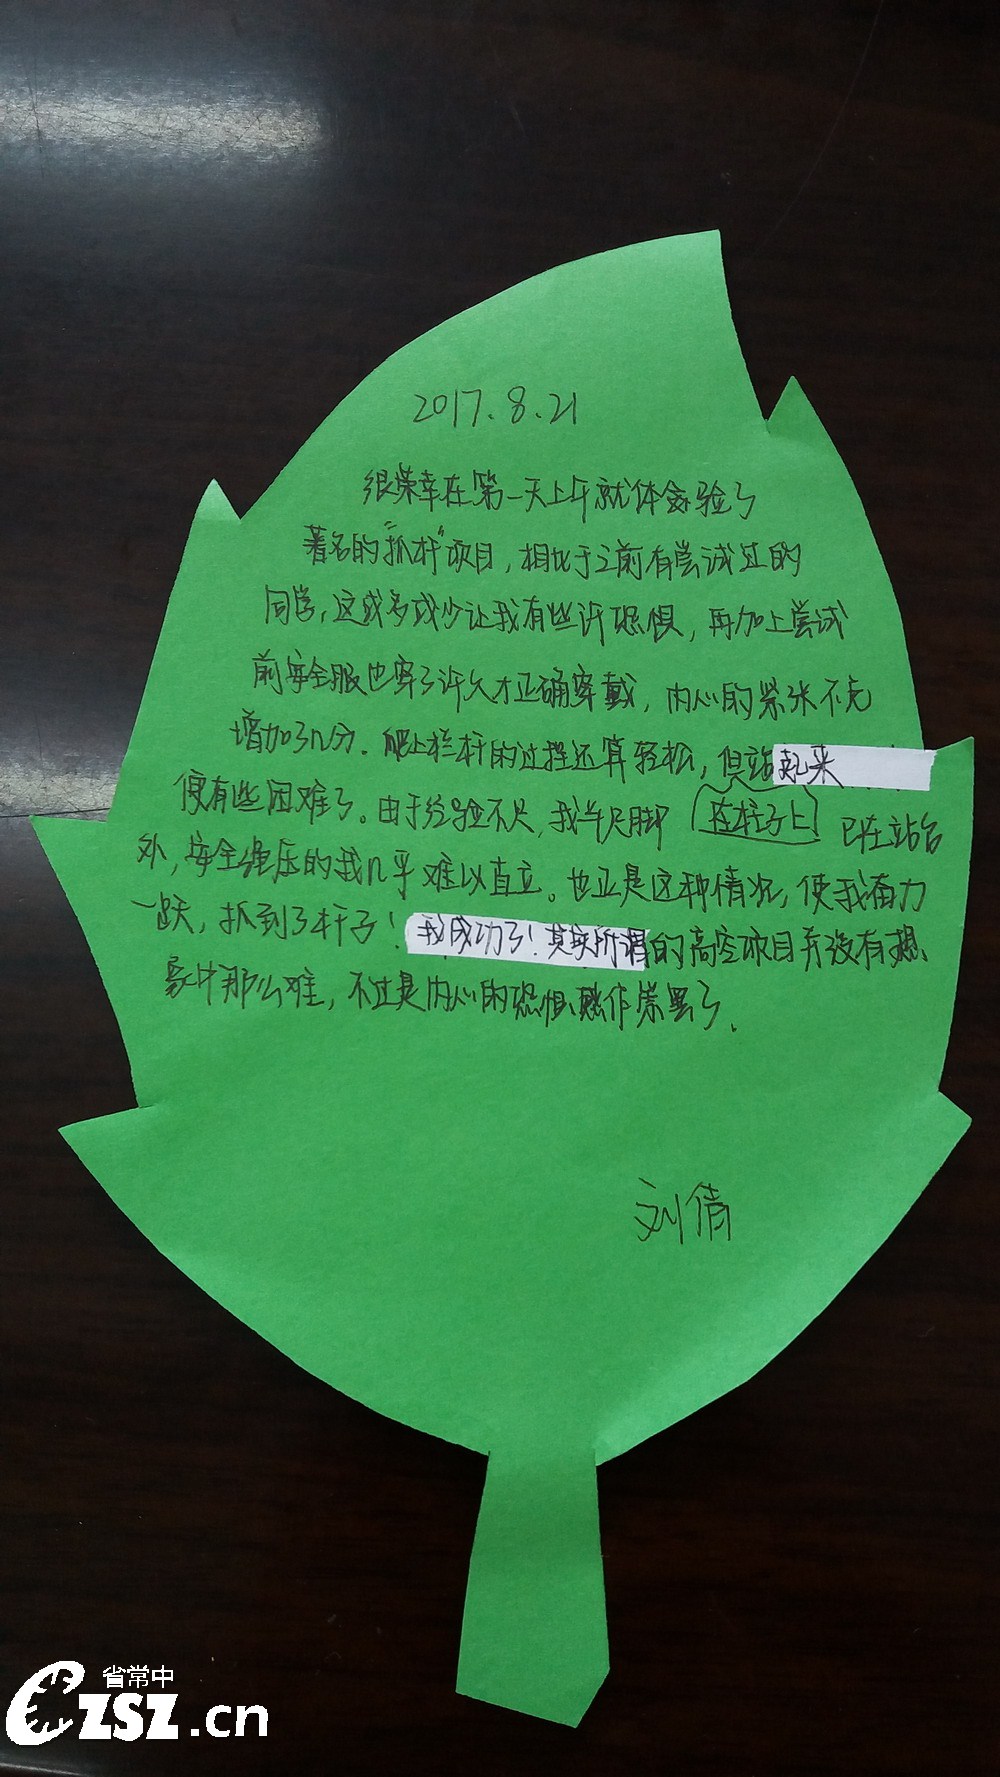 2017.8.21
很荣幸在第一天上午就体会验了
著名的“抓杆”项目，相比于之前有尝试过的
同学，这或多或少让我有些许恐惧，再加上尝试
前安全服也穿了许久才正确穿戴，内心的紧张不免
增加了几分。爬上栏杆的过程还算轻松，但站起来
便有些困难了。由于经验不足，我半只脚 在柱子上 已在站台
外，安全绳压的我几乎难以直立。也正是这种情况，使我奋力
一跃，抓到了杆子！我成功了！其实所谓的高空项目并没有想
象中那么难，不过是内心的恐惧感作祟罢了。
刘倩
省常中
CZSZ.cn